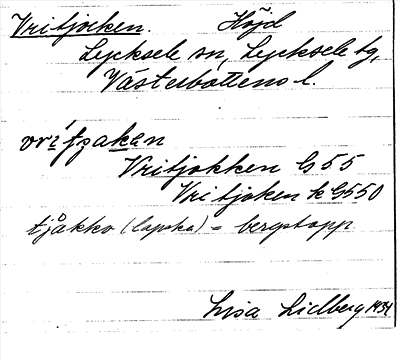 Vritjåcken. Höjd
Lycksele sn, Lycksele tg,
Västerbottens l.
vrítzakən
Vritjokken G 55
Vritjåken k G 550
tjåkko (lapska) = bergstopp.
Lisa Lidberg 1934